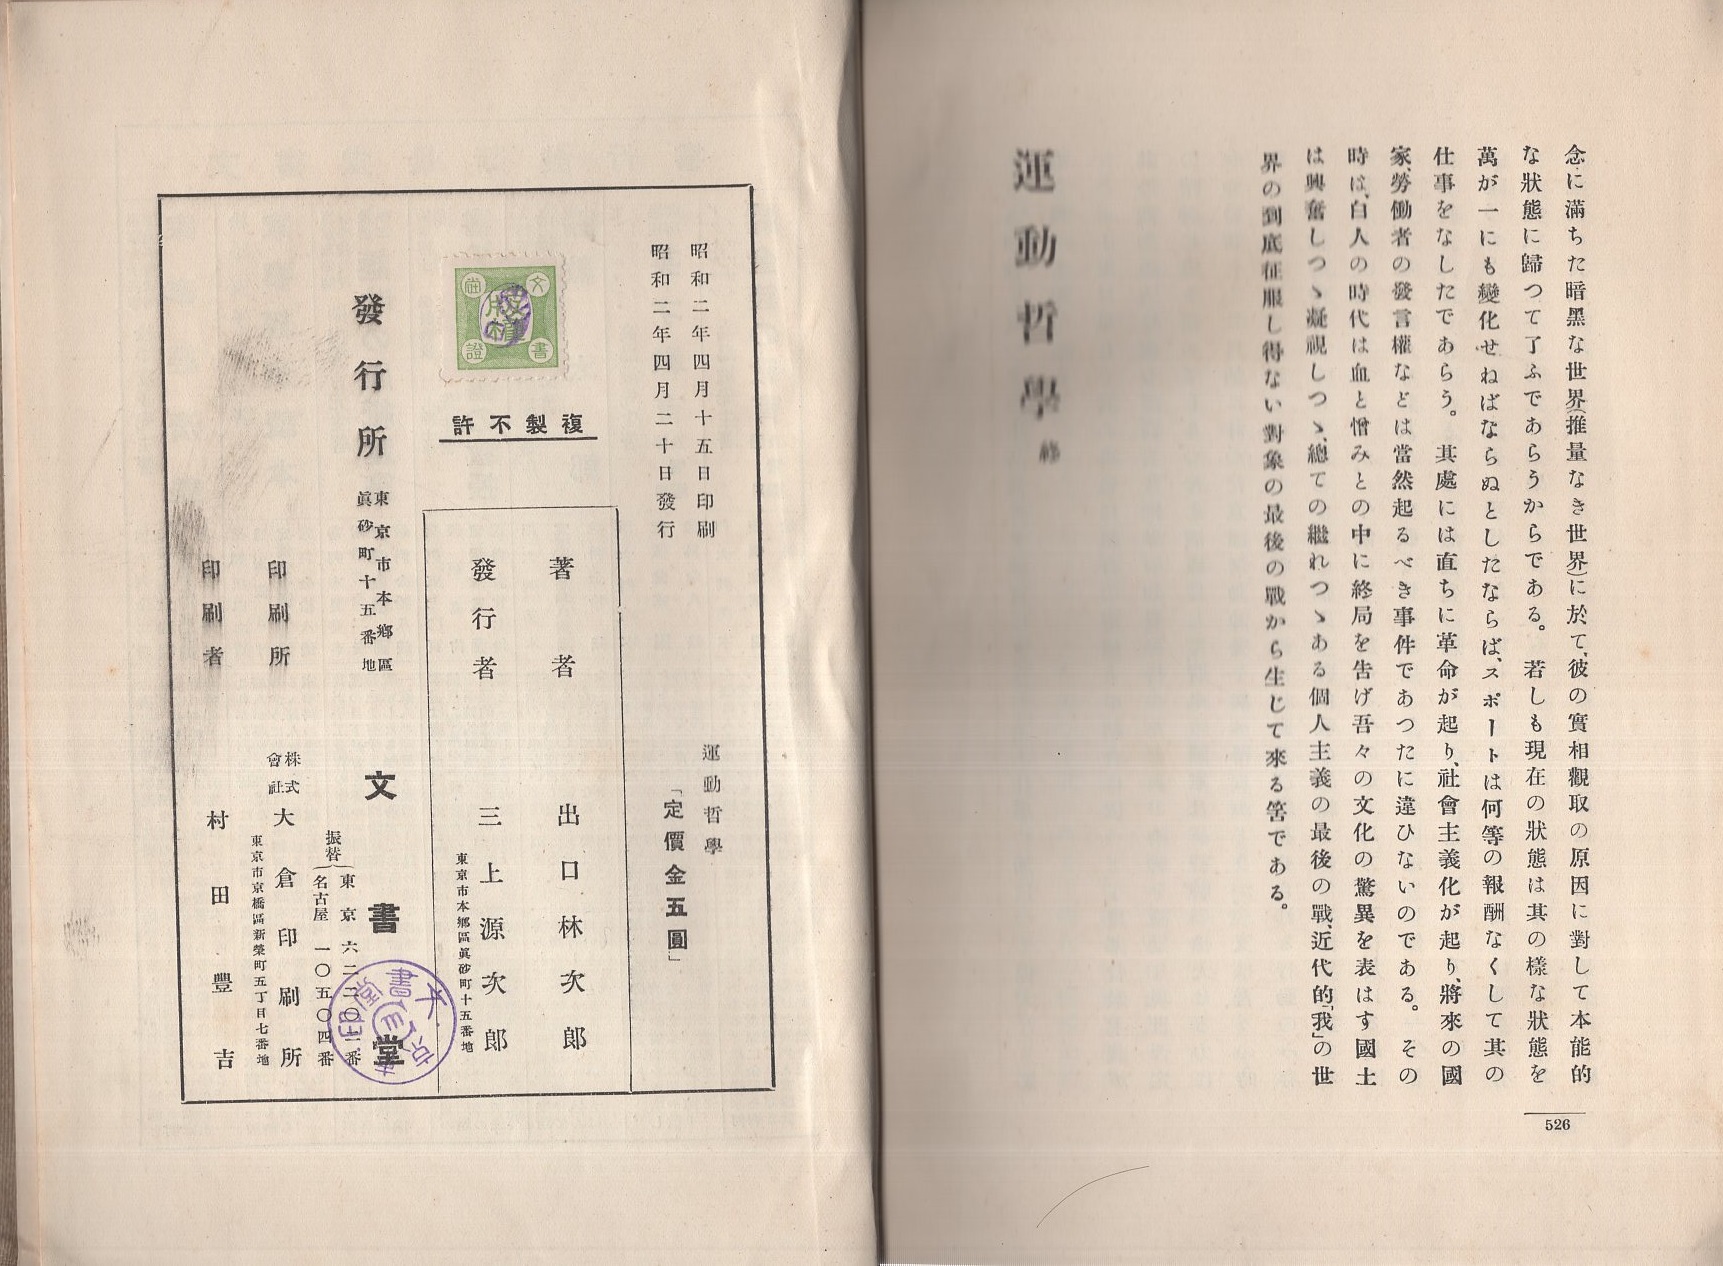 念に滿ちた暗黑な世界(推量なき世界)に於て、彼の實相觀取の原因に對して本能的
な狀態に歸つて了ふであらうからである。若しも現在の狀態は其の樣な狀態を
萬が一にも變化せねばならぬとしたならば、スポートは何等の報酬なくして其の
仕事をなしたであらう。其處には直ちに革命が起り、社會主義化が起り、將來の國
家、勞働者の發言權などは當然起るべき事件であつたに違ひないのである。その
時は、白人の時代は血と憎みとの中に終局を告げ吾々の文化の驚異を表はす國土
は興奮しつゝ凝視しつゝ、總ての繼れつゝある個人主義の最後の戰、近代的「我」の世
界の到底征服し得ない對象の最後の戰から生じて來る筈である。
運動哲學 終
526
昭和二年四月十五日印刷
昭和二年四月二十日發行
運動哲學
「定價金五圓」
文書
證
複製不許
著者 出口林次郎
發行者 三上源次郎
東京市本鄉區眞砂町十五番地
發行所
東京市本鄉區
眞砂町十五番地
文書堂
振替
東京六二二〇一番
名古屋一〇五〇四番
印刷所
株式會社
大倉印刷所
東京市京橋區新榮町五丁目七番地
印刷者 村田豐吉